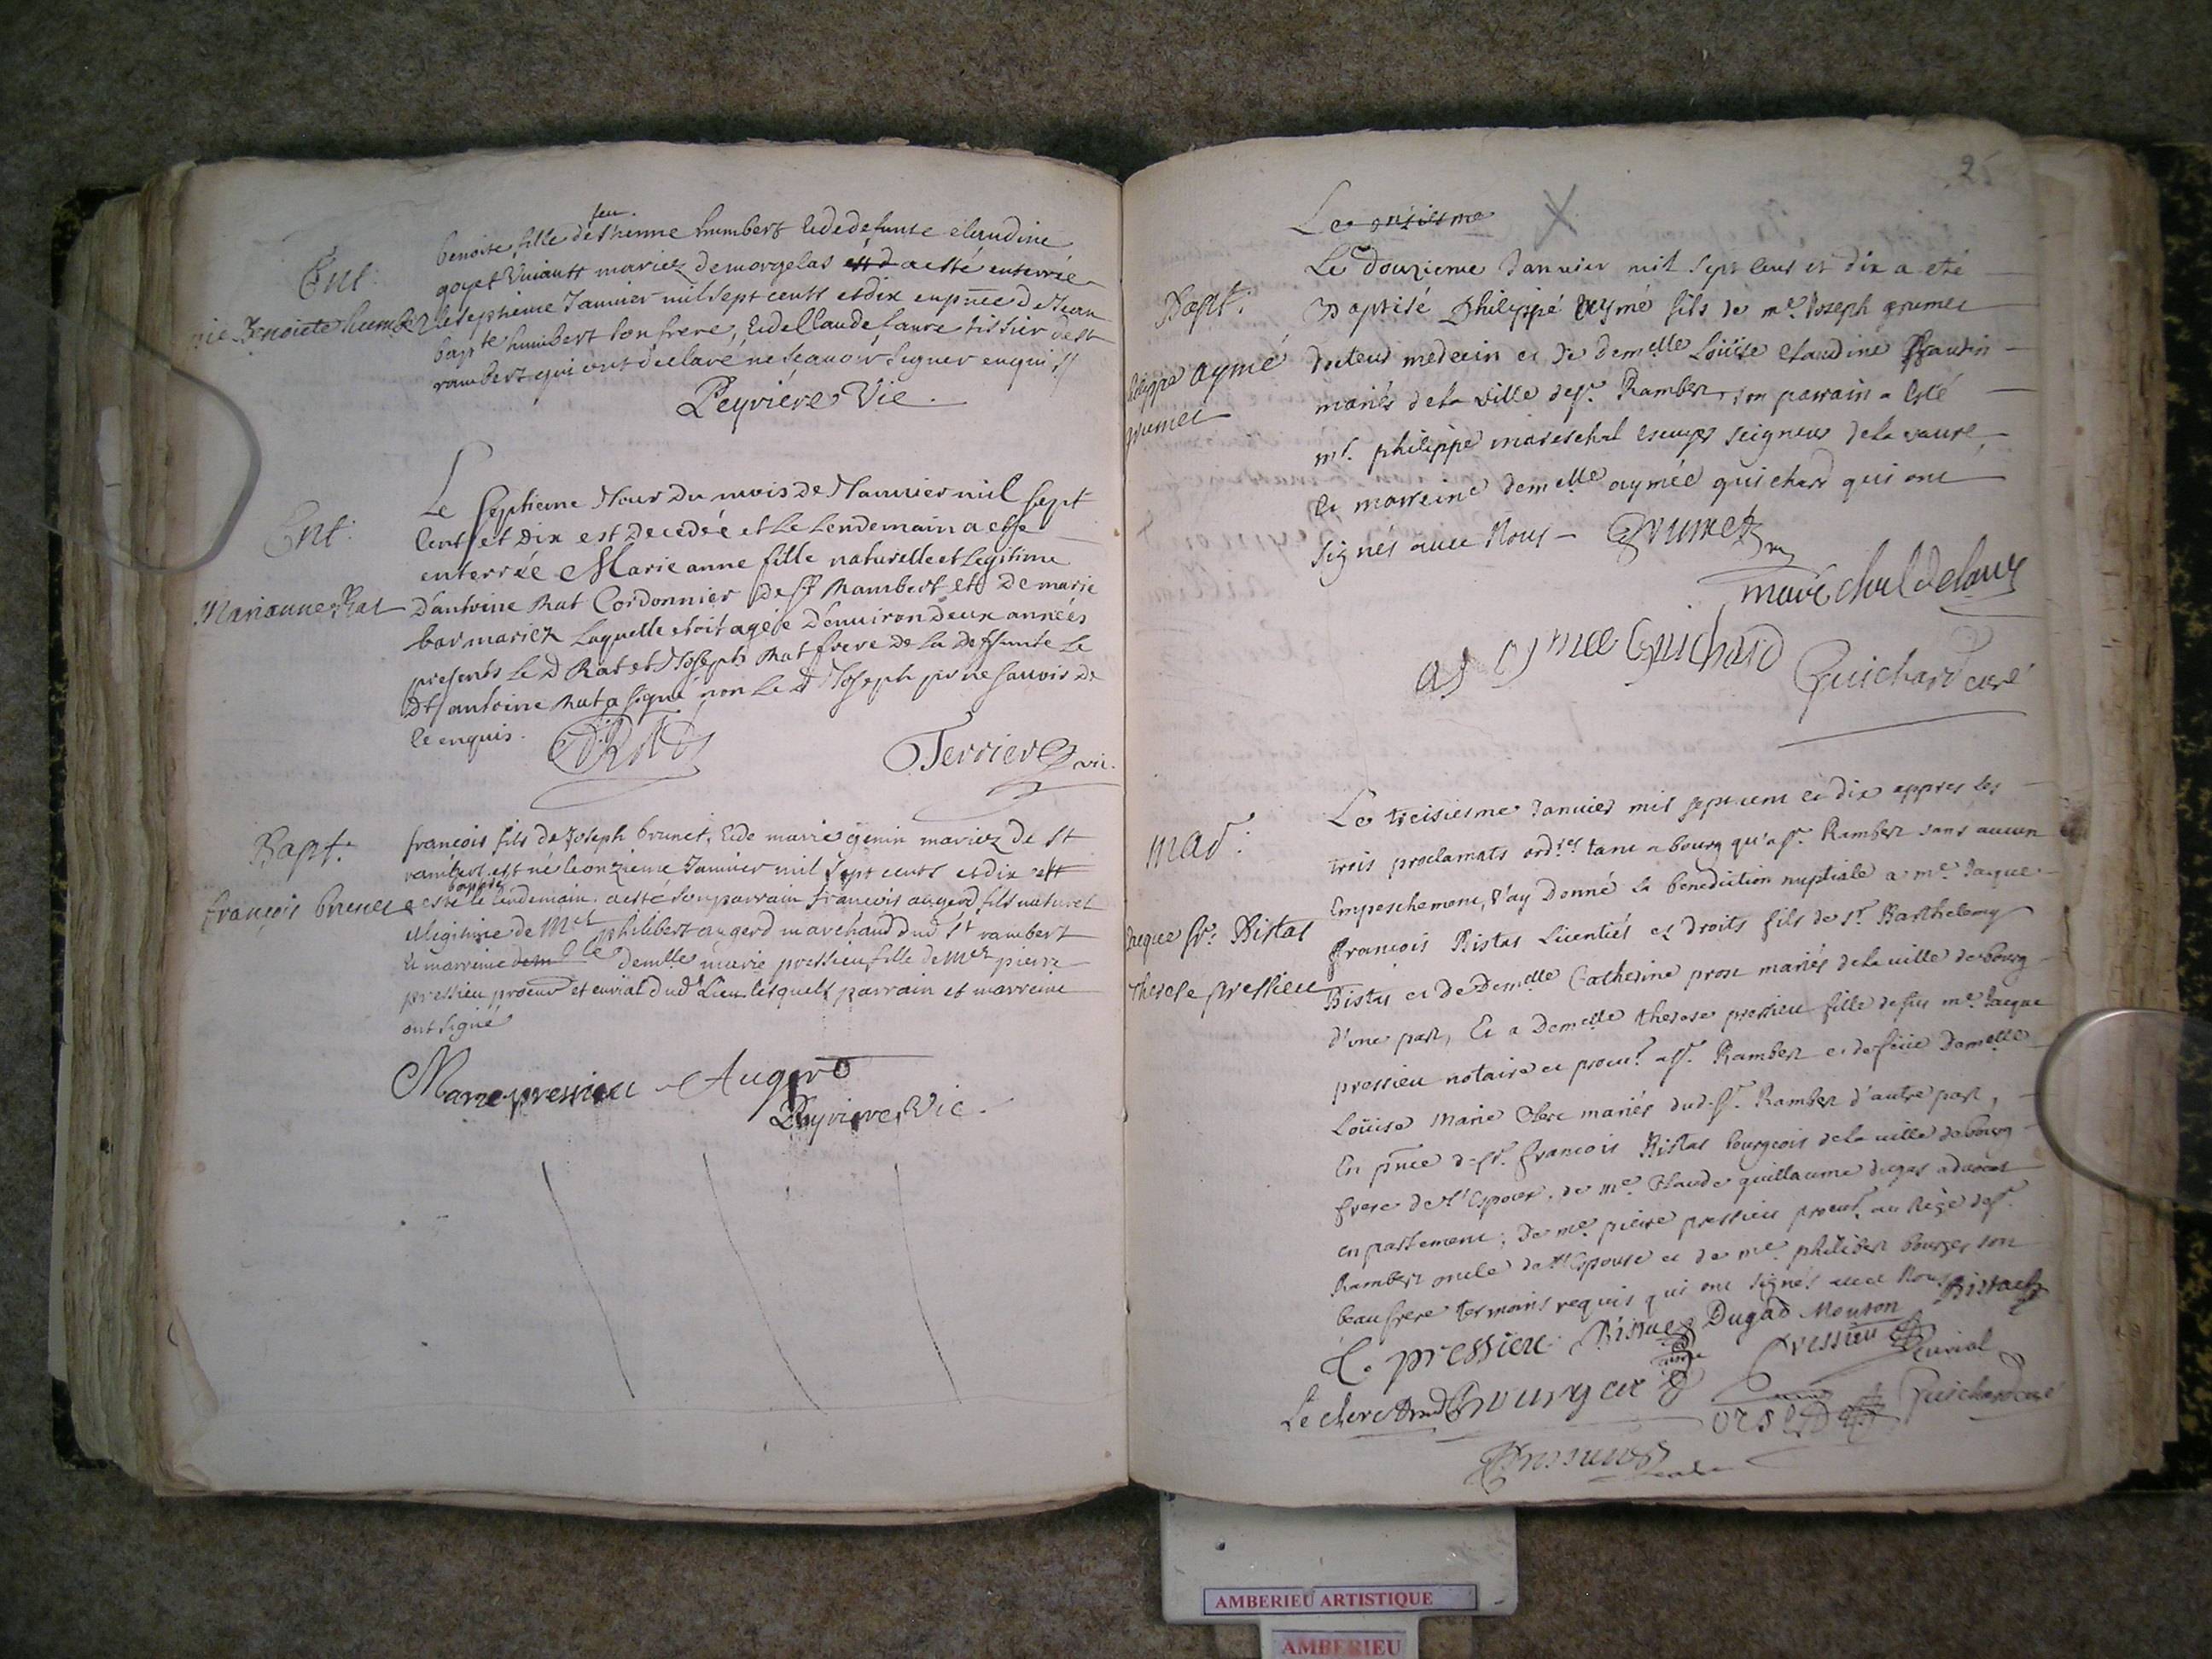 feu
benoite fille de Thenne humbert Et de defunte claudine
Ent:
goyet Vivants mariez de morgelas est d a esté enterrée
Benoiete humbert
le septieme Janvier mil sept cents et dix en pnce de Jean
bapte humbert son frere, Et de Claude faure tissier de st
rambert qui ont declaré ne scavoir signer enquis
Peyriere Vic.
Le septieme Jour du mois de Janvier mil sept
Ent:
Cent et dix est decedée et le lendemain a esté
enterrée Marie anne fille naturelle et legitime
Marianne Rat
D'antoine Rat Cordonnier de st Rambert et de marie
bar mariez Laquelle etoit agée d'environ deux années
presents le d Rat et Joseph Rat frere de la deffunte le
dt antoine Rat a signé non le d Joseph pr ne savoir de
ce enquis.
Rat
Terrier vic.
Bapt.
francois fils de Joseph brunet, Et de marie genin mariez de st
rambert est né le onzieme Janvier mil sept cents et dix et
baptisé
françois brunet
a esté le lendemain. a esté son parrain francois augerd fils naturel
et legitime de Mer philibert augerd marchand dud st rambert
la marreine dem lle demlle marie pressieu fille de Mer pierre
pressieu procur et curial dud Lieu lesquels parrain et marreine
ont signé
Marie pressieu Augerd
Peyriere Vic.
25
Le onsiesme X
Le douzieme Janvier mil sept cens et dix a eté
Bapt.
Baptisé Philippé Aymé fils de me. Joseph grumet
philippe aymé
docteur medecin et de demelle Loüise Claudine
grumet
mariés de la ville de st. Rambert son parrain a esté
mr. philippe mareschal escuyer seigneur de la vaure
la marreine demelle aymée guichard qui ont
signés avec Nous Grumet
marechal delavu
aymee Guichard
Guichard curé
Le treisiesme Janvier mil sept cent et dix appres les
Mar.
trois proclamats ordres tant a bourg qu'a st. Rambert sans aucun
Empeschement, J'ay Donné la benediction nuptiale a me. Jaque
Jaque fr. Bistac
francois Bistac Licentiés es droits fils de sr. Barthelemy
therese pressieu
Bistac et de Demelle Catherine prost mariés de la ville de bourg
d'une part, Et a Demelle therese pressieu fille de feu me. Jaque
pressieu notaire et procur. a st. Rambert et de feüe Demelle
Loüise Marie Clerc mariés dud. st. Rambert d'autre part,
En pnce de sr. francois Bistac bourgeois de la ville de bourg
frere de l'Espoux, de me. Claude guillaume dugas advocat
en parlement, De me. pierre pressieu procur. au siège de st.
Rambert oncle de l'Espouse et de me. philibert bourger son
beaufrere tesmoins requis qui ont signés avec Nous Bistac
T. pressieu Bistac Dugad Mouton
pressieu Curial
Le clerc Bourger Orset Guichard curé
AMBERIEU ARTISTIQUE
AMBERIEU